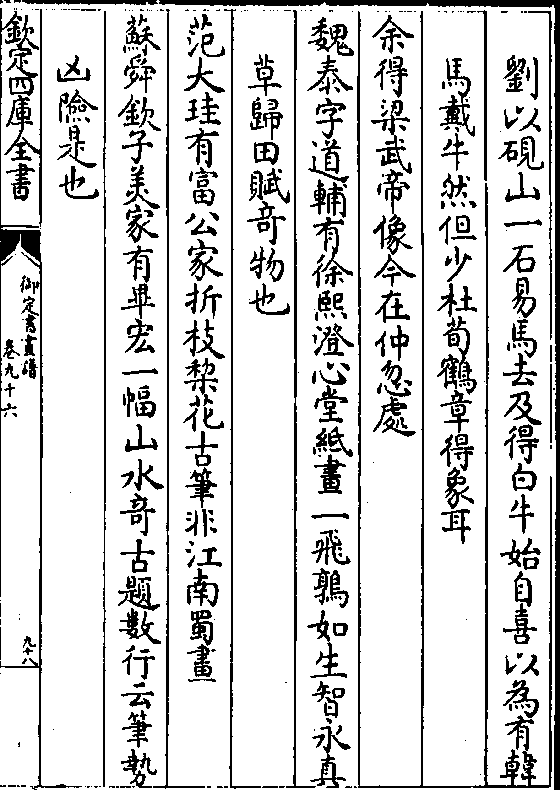 劉以硯山一石易馬去及得白牛始自喜以為有韓
馬戴牛然但少杜荀鶴章得象耳
余得梁武帝像今在仲忽處
魏泰字道輔有徐熙澄心堂紙畫一飛鶉如生智永真
草歸田賦竒物也
范大珪有富公家折枝梨花古筆非江南蜀畫
蘇舜欽子美家有畢宏一幅山水竒古題數行云筆勢
凶險是也
欽定四庫全書
御定書畫譜
卷九十六
九十八